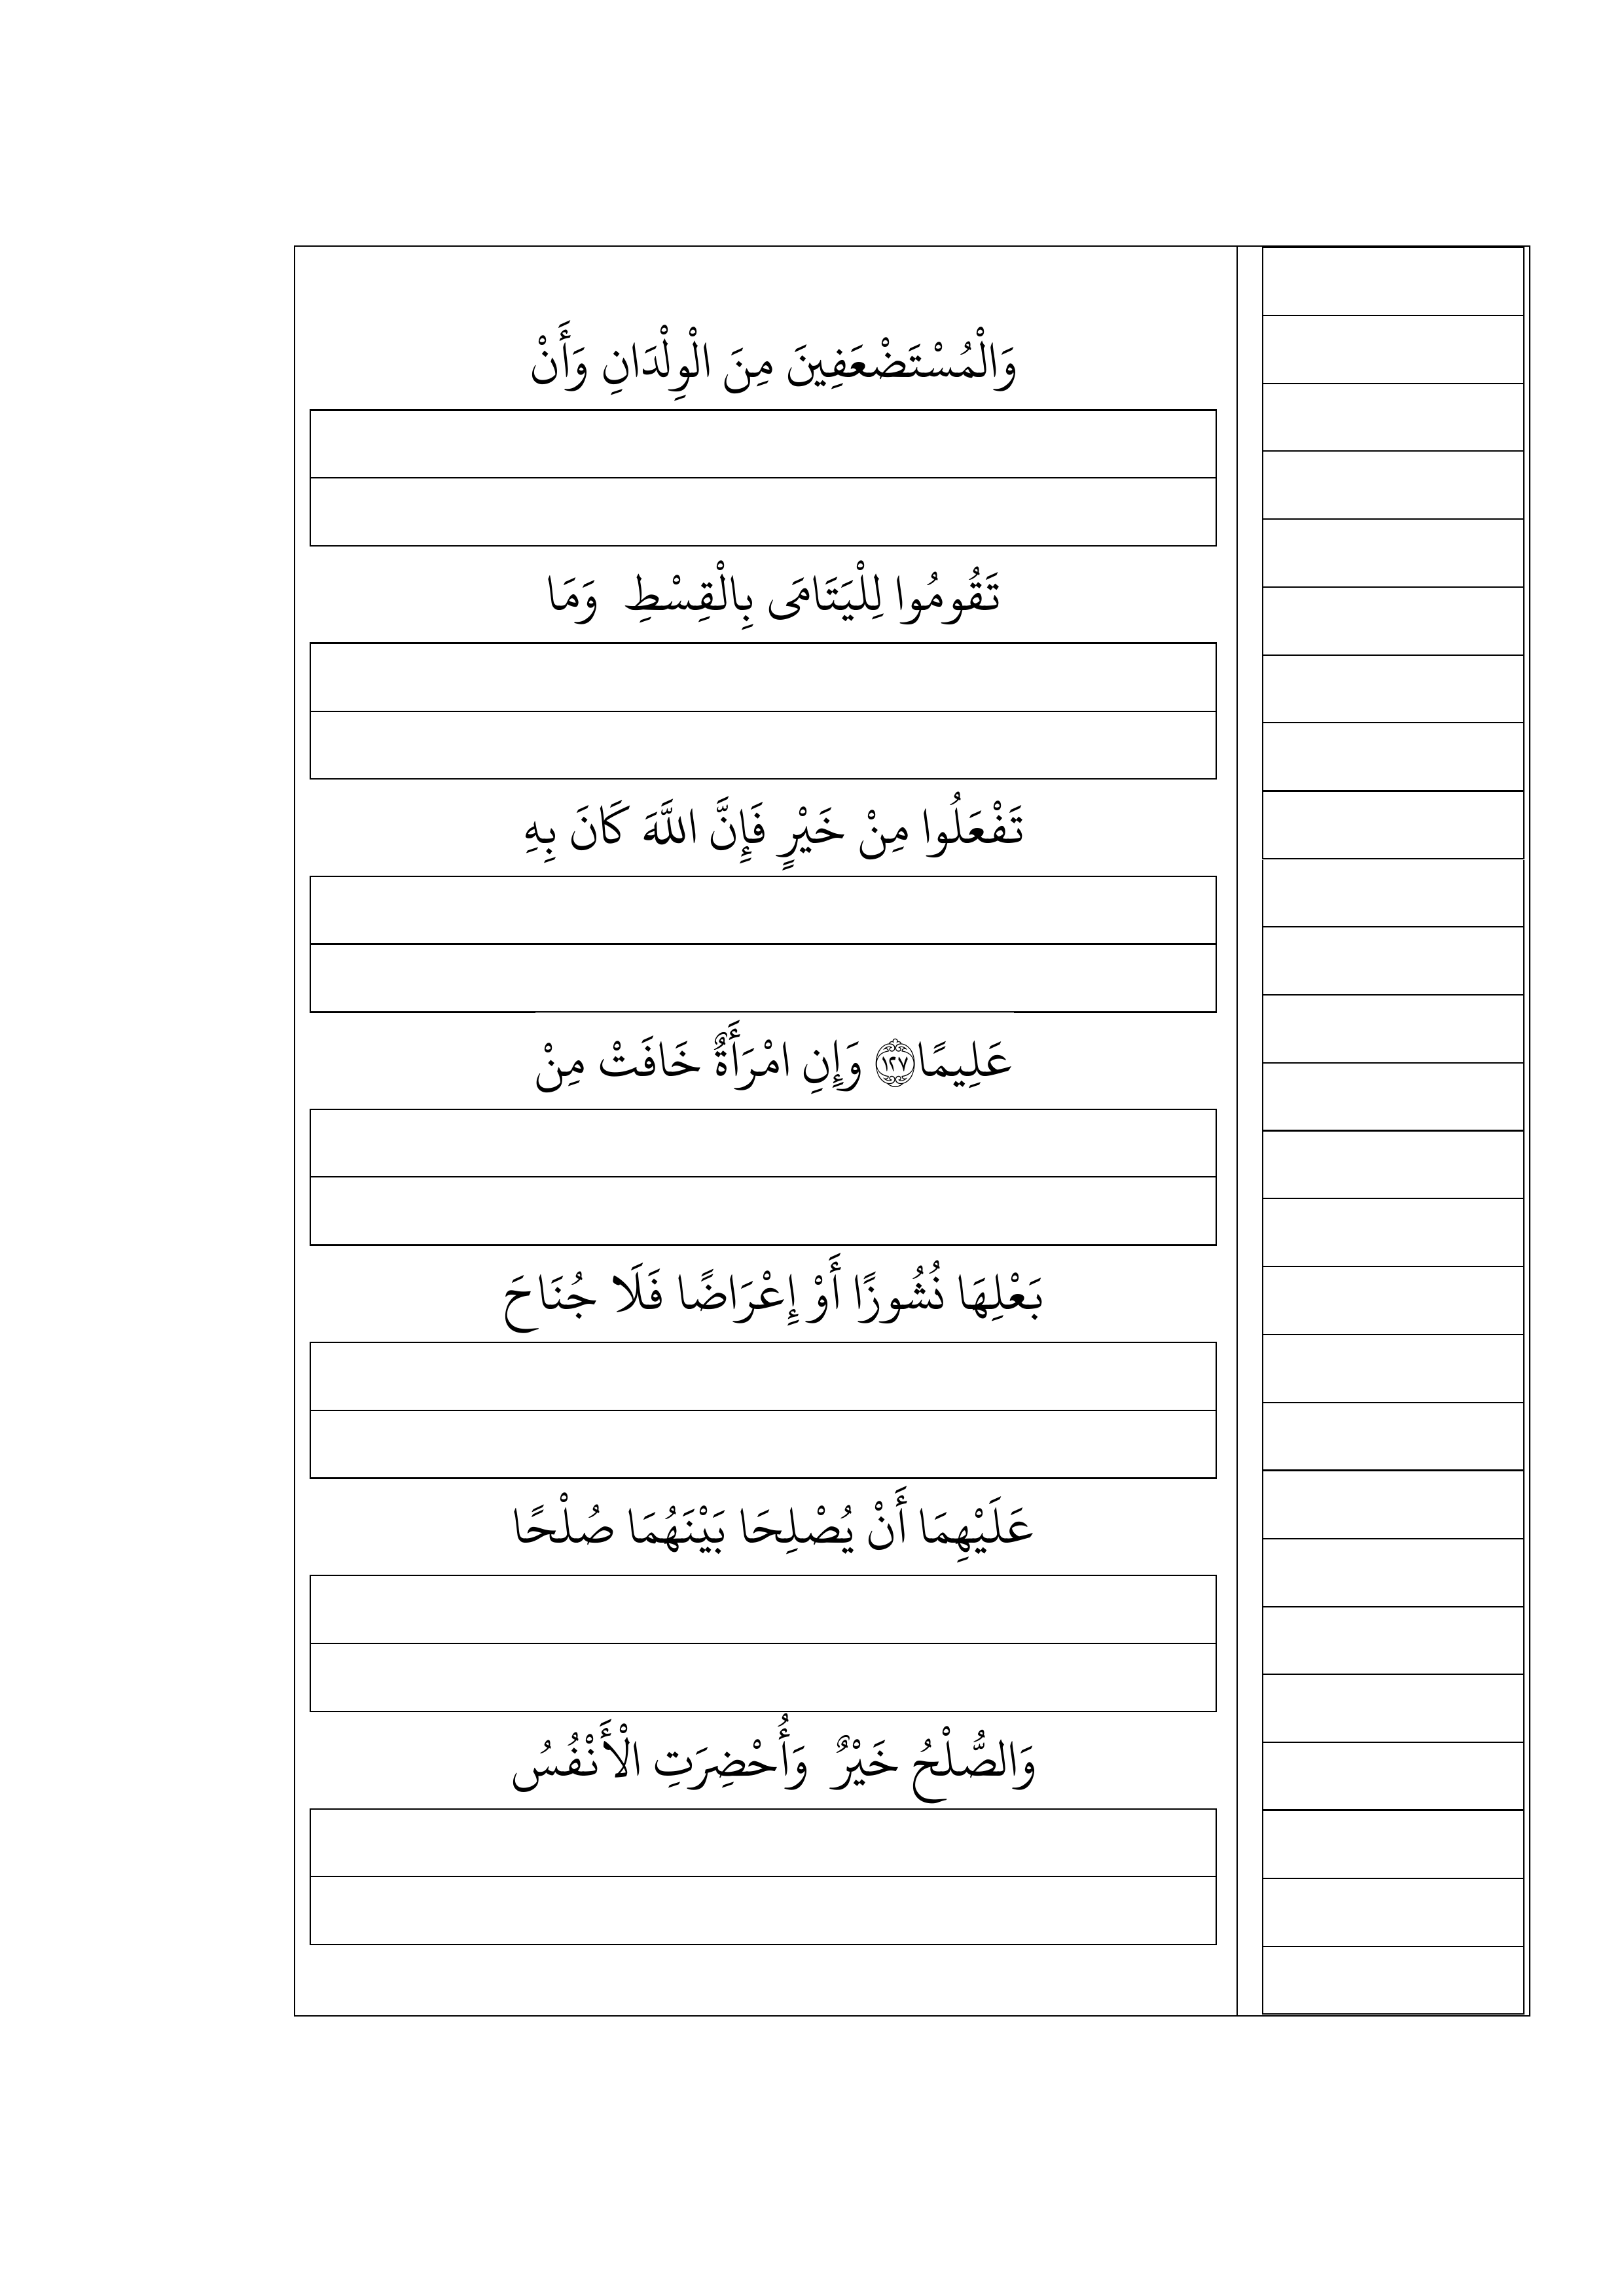 وَالْمُسْتَضْعَفِينَ مِنَ الْوِلْدَانِ وَأَنْ
تَقُومُوا لِلْيَتَامَى بِالْقِسْطِ وَمَا
تَفْعَلُوا مِنْ خَيْرٍ فَإِنَّ اللَّهَ كَانَ بِهِ
عَلِيمًا ﴿١٢٧﴾ وَإِنِ امْرَأَةٌ خَافَتْ مِنْ
بَعْلِهَا نُشُوزًا أَوْ إِعْرَاضًا فَلَا جُنَاحَ
عَلَيْهِمَا أَنْ يُصْلِحَا بَيْنَهُمَا صُلْحًا
وَالصُّلْحُ خَيْرٌ وَأُحْضِرَتِ الْأَنْفُسُ